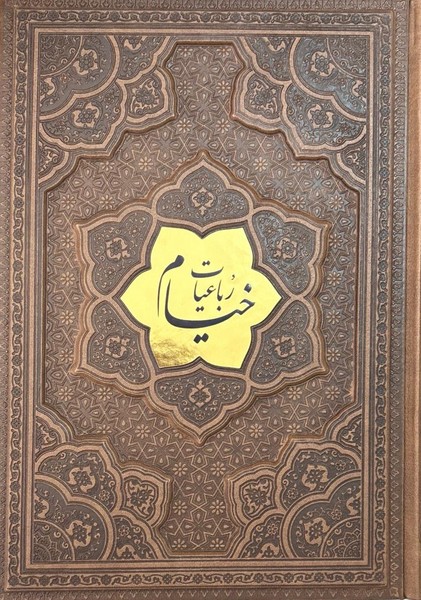 رُباعیات
خیام